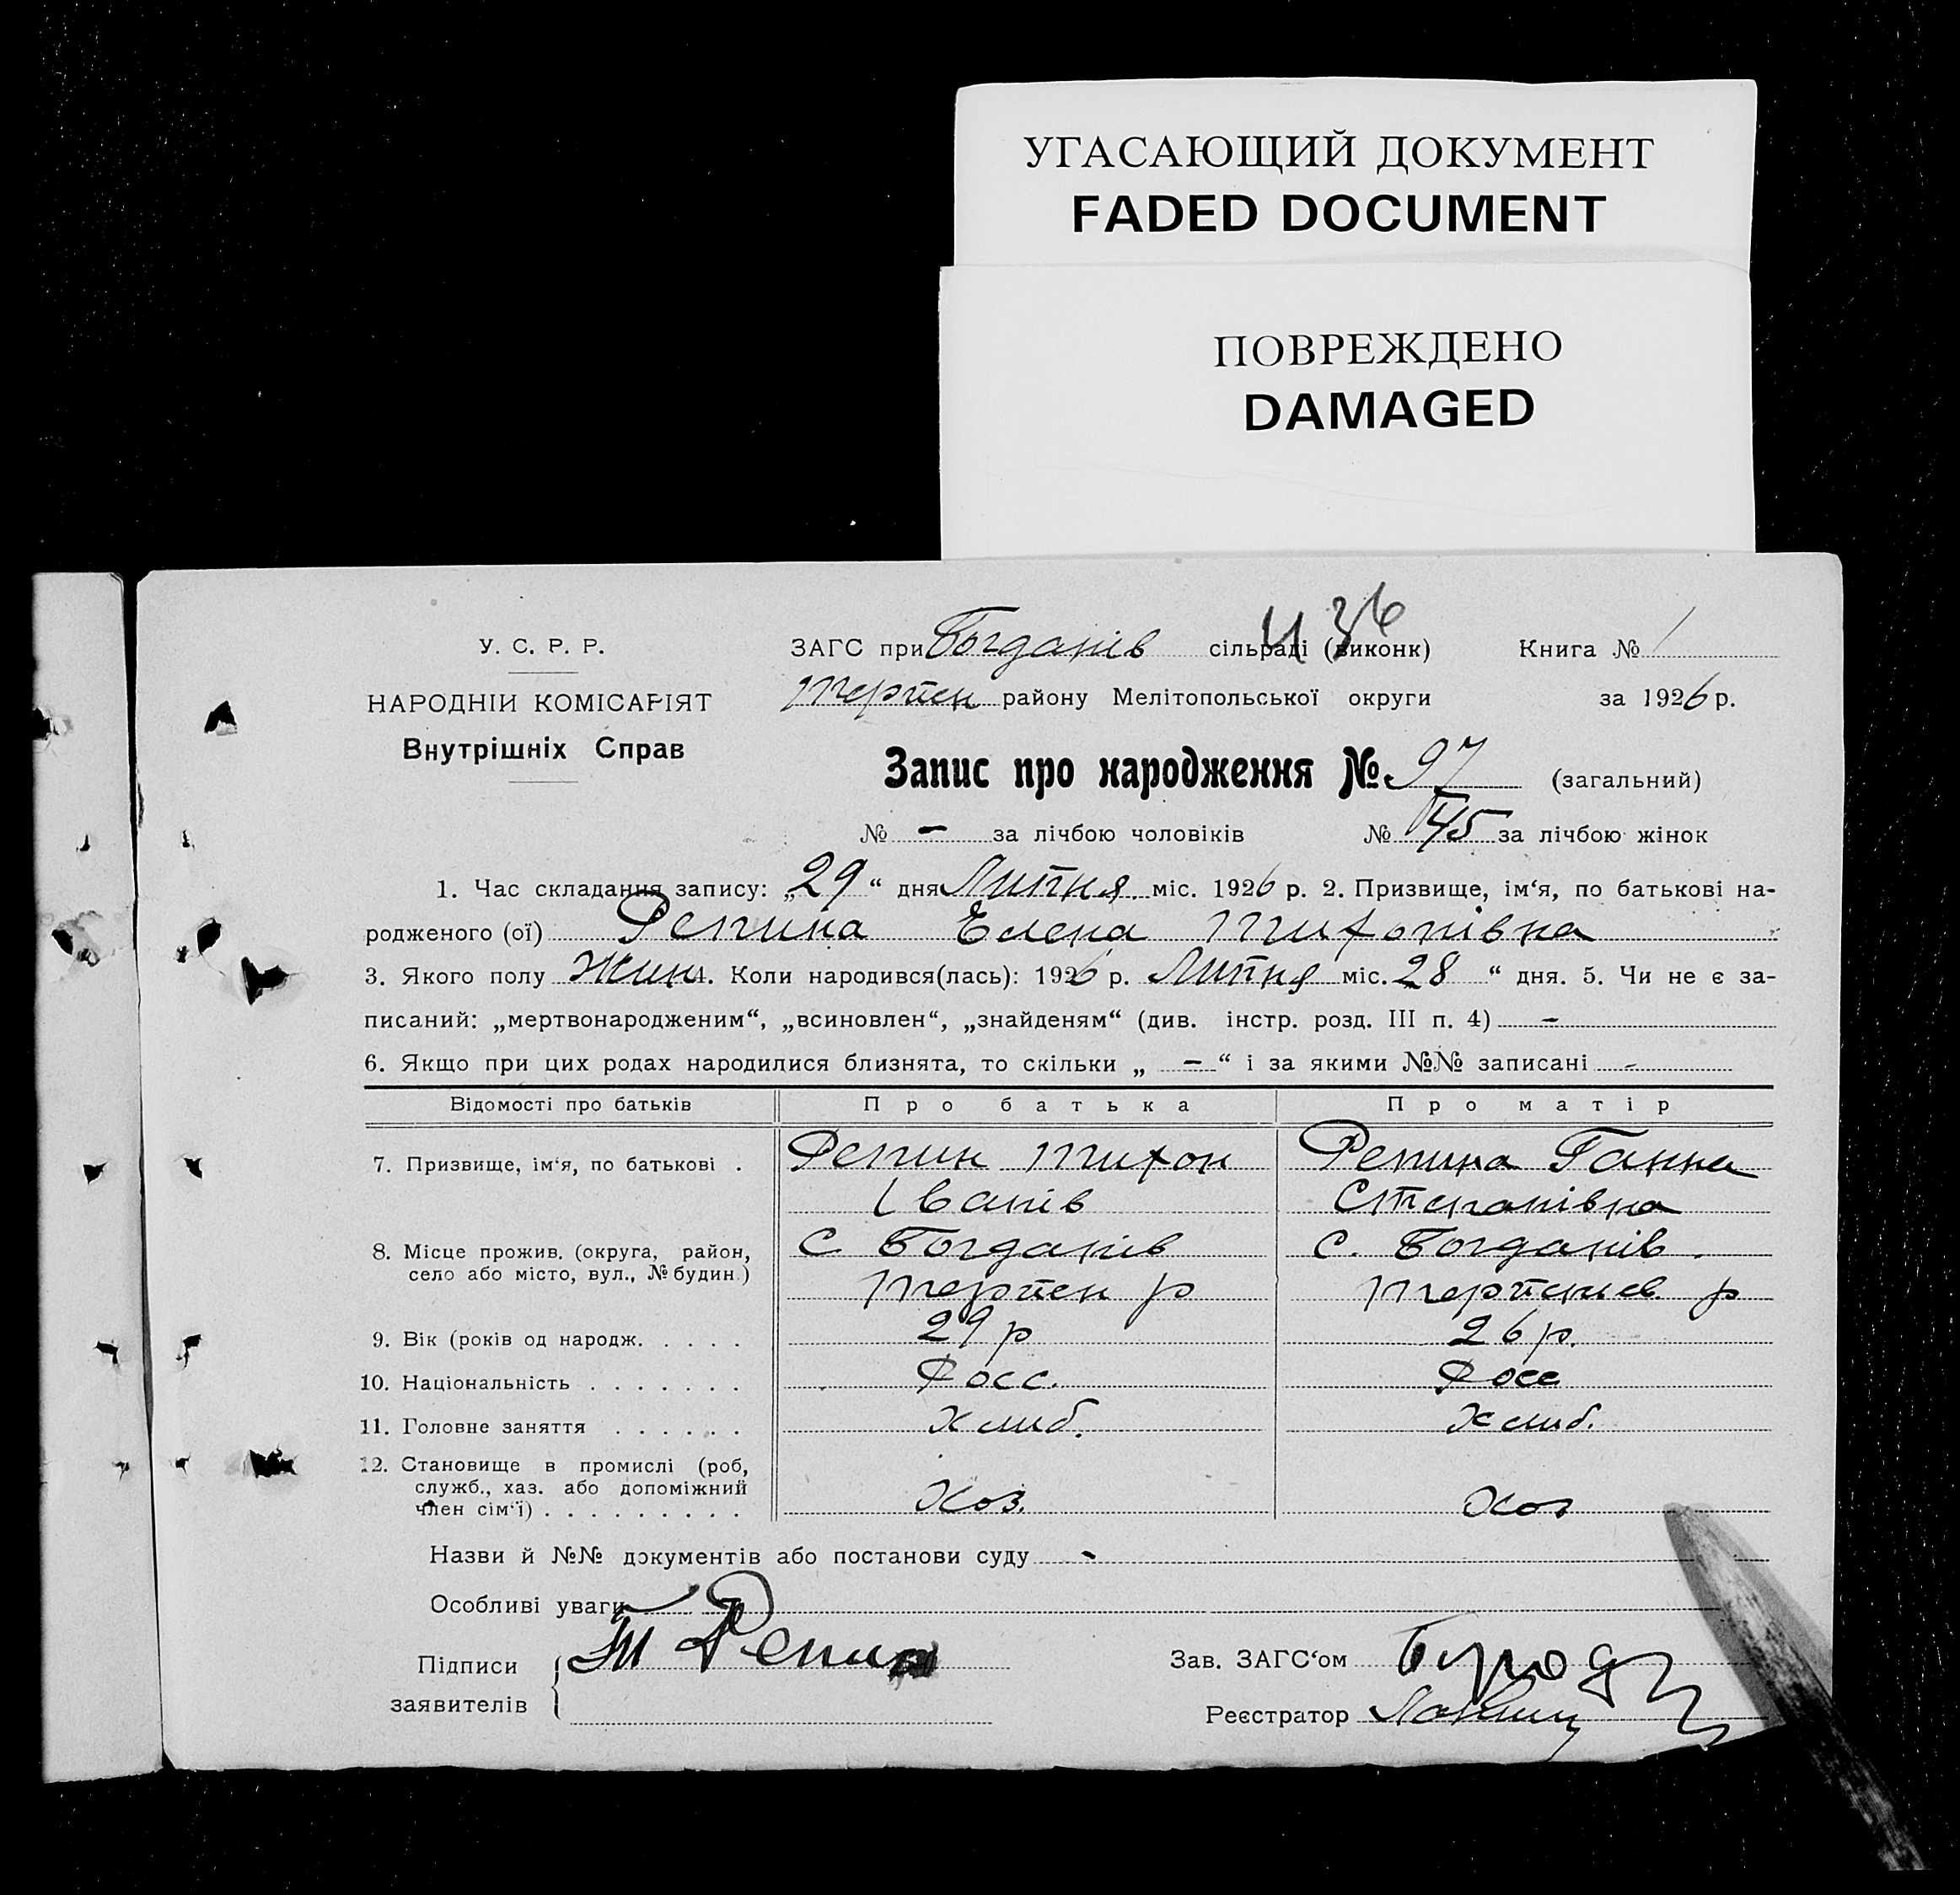 УГАСАЮЩИЙ ДОКУМЕНТ
FADED DOCUMENT
ПОВРЕЖДЕНО
DAMAGED
У. С. Р. Р.
НАРОДНІЙ КОМІСАРІЯТ
Внутрішніх Справ
ЗАГС при Богданів сільраді (виконк) Книга № 1
36
Терпен району Мелітопольської округи за 1926 р.
Запис про народження № 97 (загальний)
№ - за лічбою чоловіків № 45 за лічбою жінок
1. Час складання запису: „29“ дня Липня міс. 1926 р. 2. Призвище, ім‘я, по батькові на-
родженого (ої) Репина Елена Тихонівна
3. Якого полу Жин 4. Коли народився(лась): 1926 р. Липня міс. 28 “ дня. 5. Чи не є за-
писаний: „мертвонародженим“, „всиновлен“, „знайденям“ (див. інстр. розд. III п. 4) -
6. Якщо при цих родах народилися близнята, то скільки „ - “ і за якими №№ записані -
Відомості про батьків Про батька Про матір
7. Призвище, ім‘я, по батькові . Репин Тихон Репина Ганна
Іванів Степанівна
8. Місце прожив. (округа, район, село або місто, вул., № будин.) с Богданів с. Богданів.
Терпен р Терпениев р
9. Вік (років од народж. . . . . 29 р 26 р.
10. Національність . . . . . . . Росс. Росс
11. Головне заняття . . . . . . Хлиб. Хлиб.
12. Становище в промислі (роб, служб., хаз. або допоміжний член сім‘ї) . . . . . . . . . Хоз. Хоз
Назви й №№ документів або постанови суду -
Особливі уваги
Підписи заявителів Т Репин
Зав. ЗАГС‘ом
Реєстратор